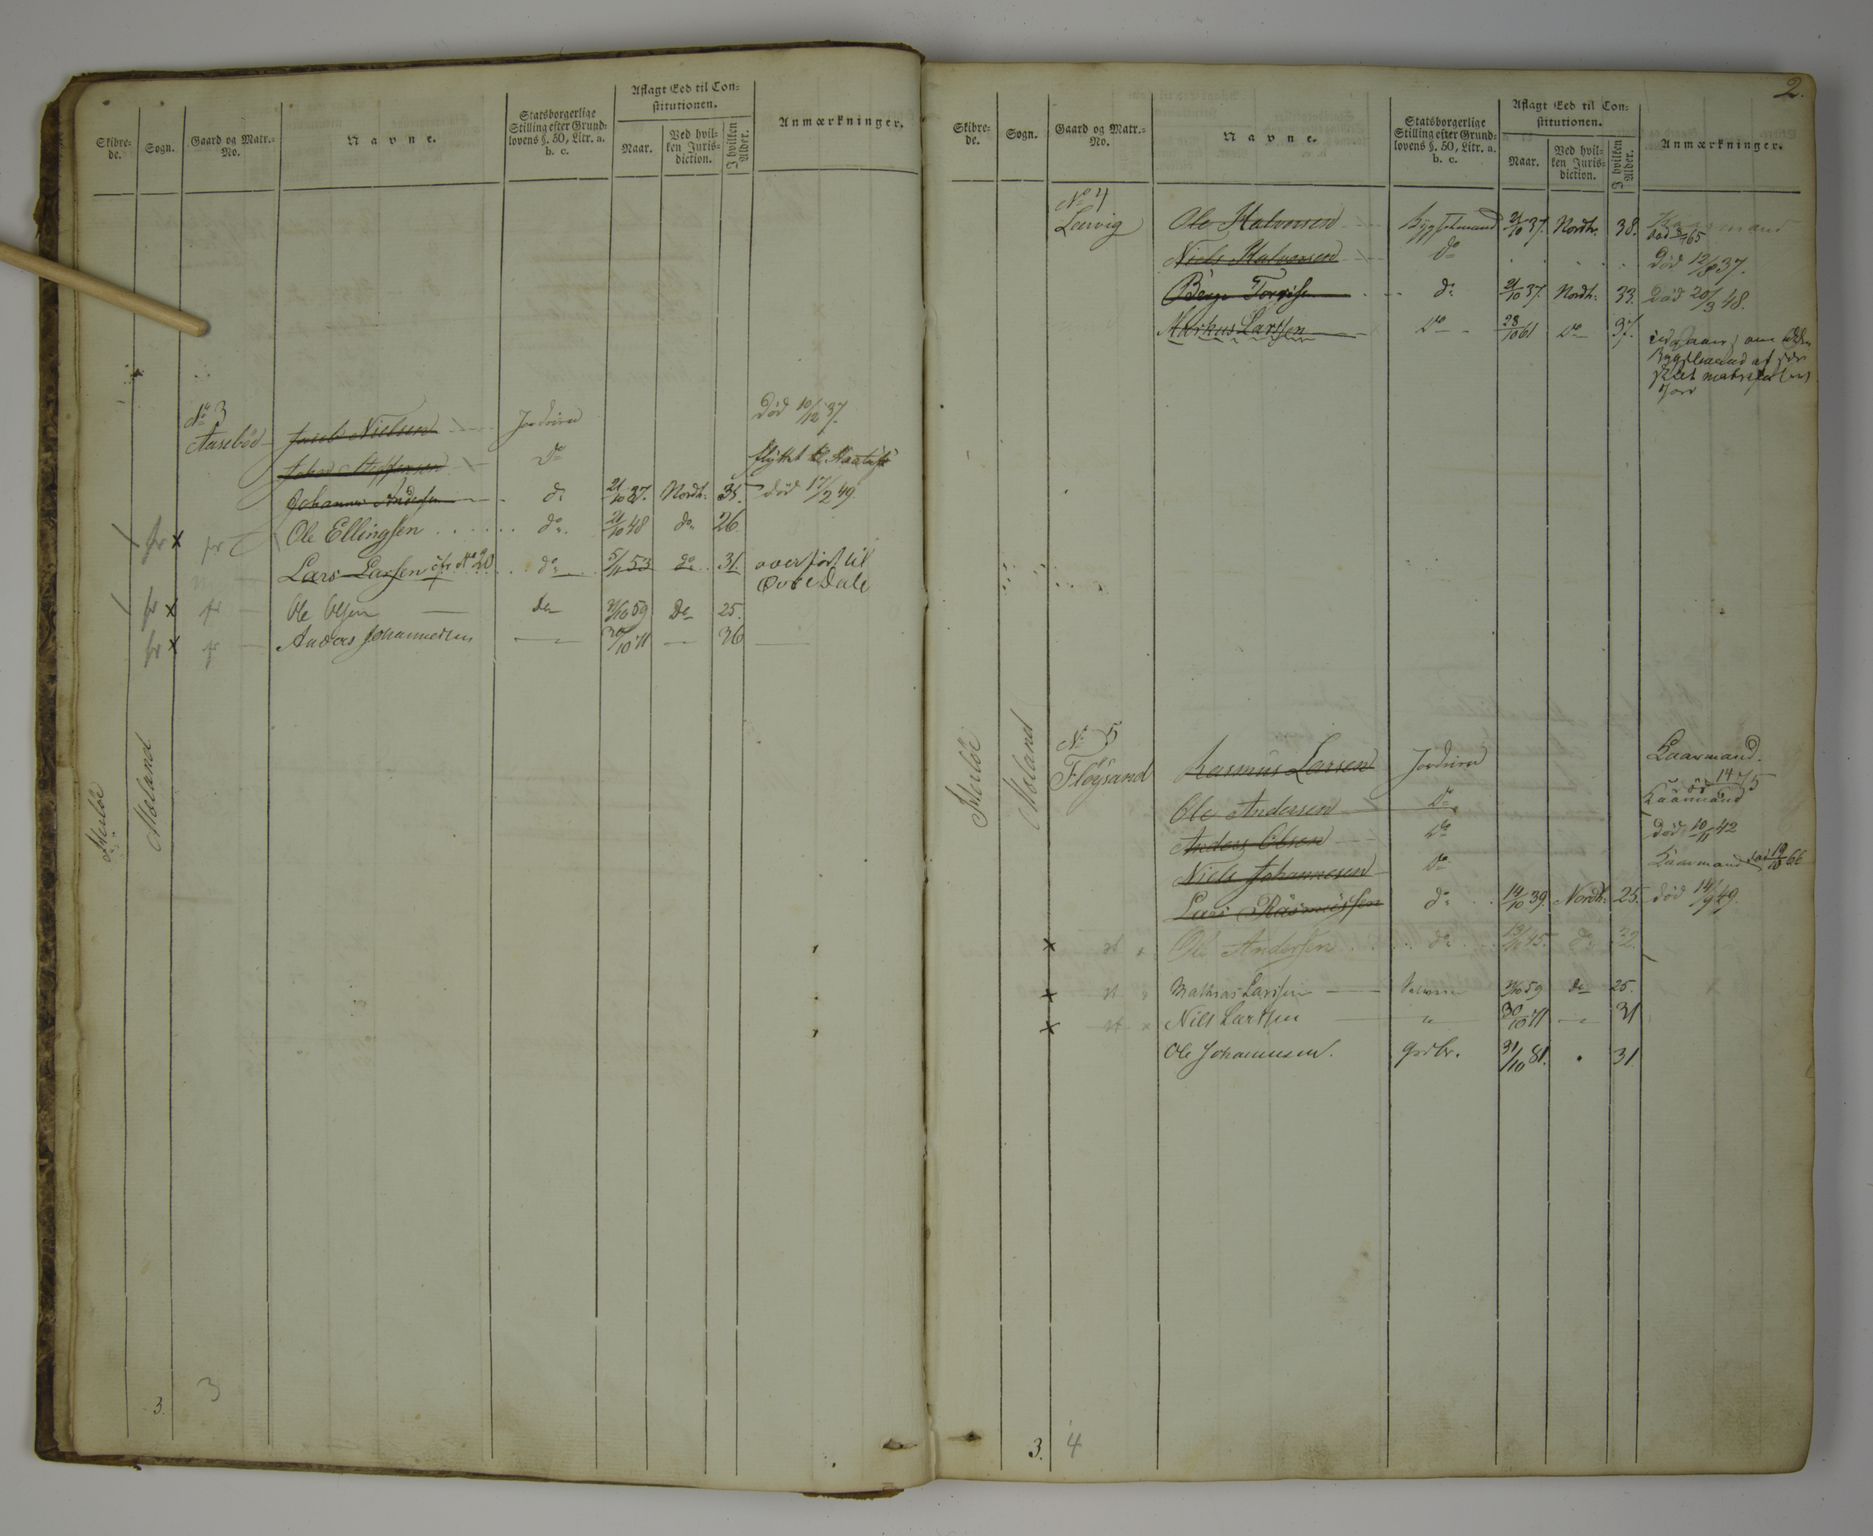 Skibre-
de.
Sogn.
Gaard og Matr.-
No.
Navne.
Statsborgerlige
Stilling efter Grund-
lovens §. 50, Litr. a.
b. c.
Aflagt Eed til Con-
stitutionen.
Naar.
Ved hvil-
ken Juris-
diction.
I hvilken
Alder.
Anmærkninger.
Meland
No 3
Aasebøe Jacob Nielsen Jordeier Død 10/12 37.
John Do flyttet til
Johannes Andersen do 21/10 37. Nordh. 35. død 17/2 49
fr x fr Ole Ellingsen do 21/10 48 do 26
Lars Larsen No 20 do 5/11 53 do 31 overført til
Øvre Dale
fr x fr Ole Olsen Do 59 Do 25.
fr x fr Anders Johannessen — 30/10 71 — 36 —
3.
3
2.
Skibre-
de.
Sogn.
Gaard og Matr.-
No.
Navne.
Statsborgerlige
Stilling efter Grund-
lovens §. 50, Litr. a.
b. c.
Aflagt Eed til Con-
stitutionen.
Naar.
Ved hvil-
ken Juris-
diction.
I hvilken
Alder.
Anmærkninger.
Meland
No 4
Ole Halvorsen Bygselmand 21/10 37. Nordh. 38.
Niels Halvorsen do Død 12/8 37.
do 21/10 37. Nordh. 33. Død 20/3 48.
Markus Larssen Do 28/10 61 Do 37.
No 5
Fløysand Rasmus Larsen Jordeier Kaarmand.
Ole Andersen Do Kaarmand
Anders Olsen Do død 10/11 42
Niels Johannesen Do Kaarmand
Lars Rasmussen do 14/10 39. Nordh. 25. død 14/9 49.
x Ole Andersen do 45. do 32.
x Mathias Larssen 59 do 25.
x Nils Larssen 30/10 71 31
Ole Johannesen. Grdbr. 31/10 81. 31
3.
4